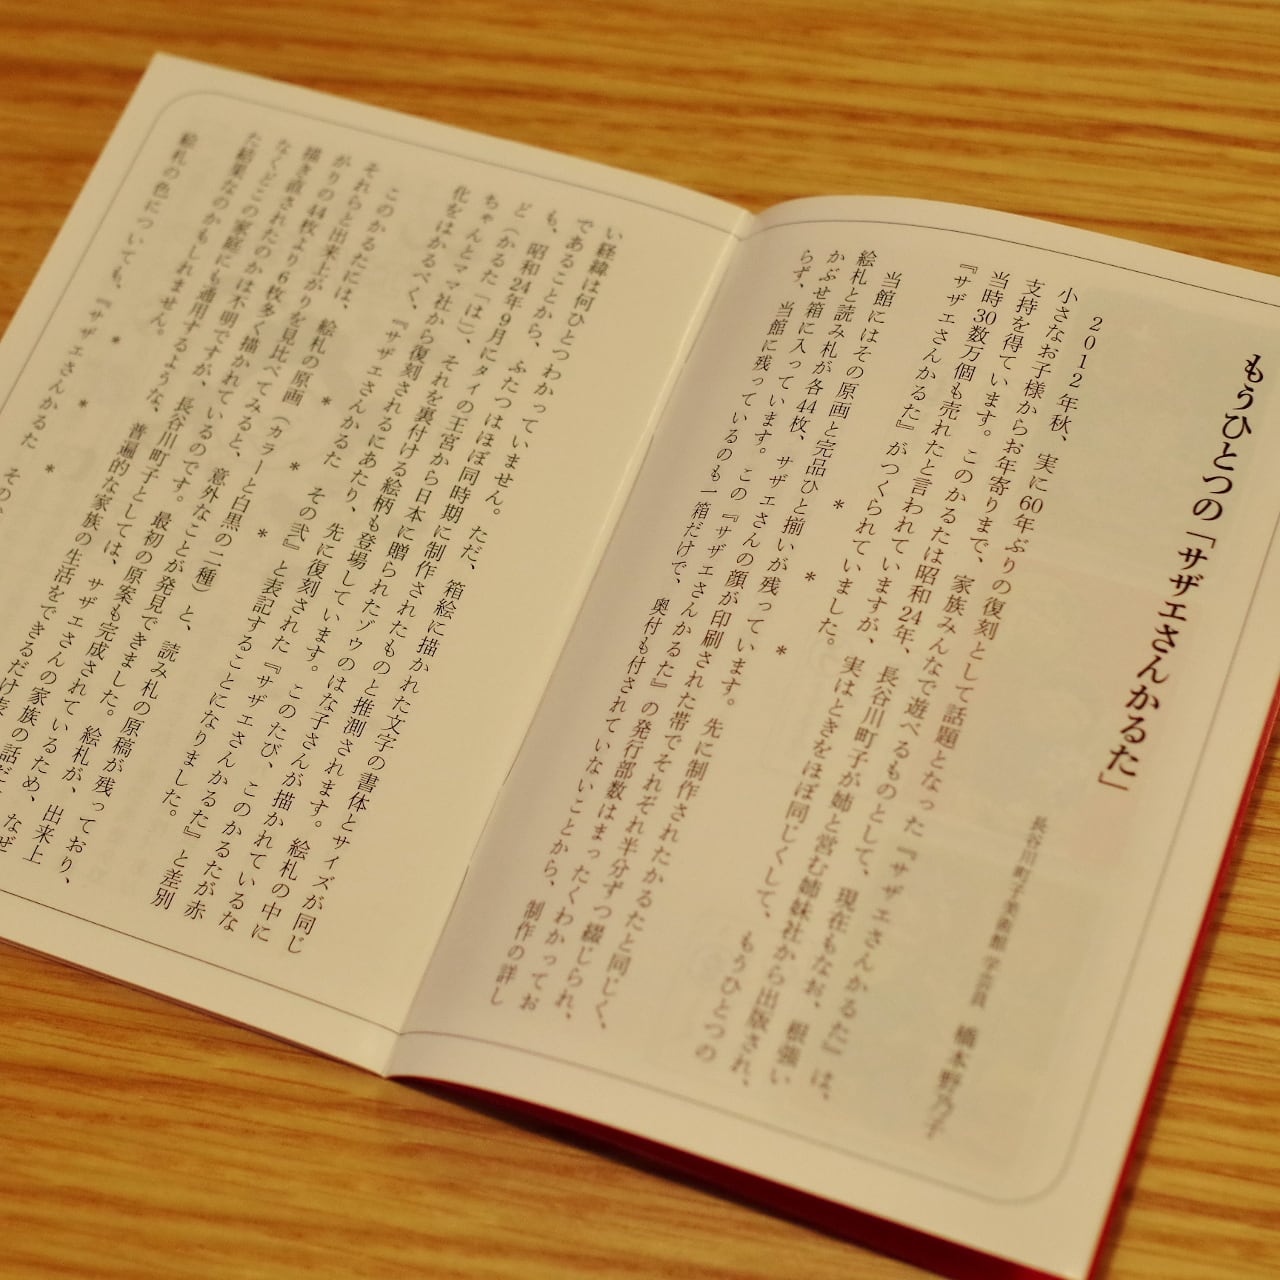 もうひとつの「サザエさんかるた」
長谷川町子美術館 学芸員　橋本野乃子
2012年秋、実に60年ぶりの復刻として話題となった『サザエさんかるた』は、
小さなお子様からお年寄りまで、家族みんなで遊べるものとして、現在もなお、根強い
支持を得ています。このかるたは昭和24年、長谷川町子が姉と営む姉妹社から出版され、
当時30数万個も売れたと言われていますが、実はときをほぼ同じくして、もうひとつの
『サザエさんかるた』がつくられていました。
＊　＊　＊
当館にはその原画と完品ひと揃いが残っています。先に制作されたかるたと同じく、
絵札と読み札が各44枚、サザエさんの顔が印刷された帯でそれぞれ半分ずつ綴じられ、
かぶせ箱に入っています。この『サザエさんかるた』の発行部数はまったくわかってお
らず、当館に残っているのも一箱だけで、奥付も付されていないことから、制作の詳し
い経緯は何ひとつわかっていません。ただ、箱絵に描かれた文字の書体とサイズが同じ
であることから、ふたつはほぼ同時期に制作されたものと推測されます。絵札の中に
も、昭和24年9月にタイの王宮から日本に贈られたゾウのはな子さんが描かれているな
ど（かるた「は」）、それを裏付ける絵柄も登場しています。このたび、このかるたが赤
ちゃんとママ社から復刻されるにあたり、先に復刻された『サザエさんかるた』と差別
化をはかるべく、『サザエさんかるた　その弐』と表記することになりました。
＊　＊　＊
このかるたには、絵札の原画（カラーと白黒の二種）と、読み札の原稿が残っており、
それらと出来上がりを見比べてみると、意外なことが発見できました。絵札が、出来上
がりの44枚より6枚多く描かれているのです。最初の原案も完成されているため、なぜ
描き直されたのかは不明ですが、長谷川町子としては、サザエさんの家族の話だ
なくどこの家庭にも通用するような、普遍的な家族の生活をできるだけ表
た結果なのかもしれません。
＊　＊　＊
絵札の色についても、『サザエさんかるた　その